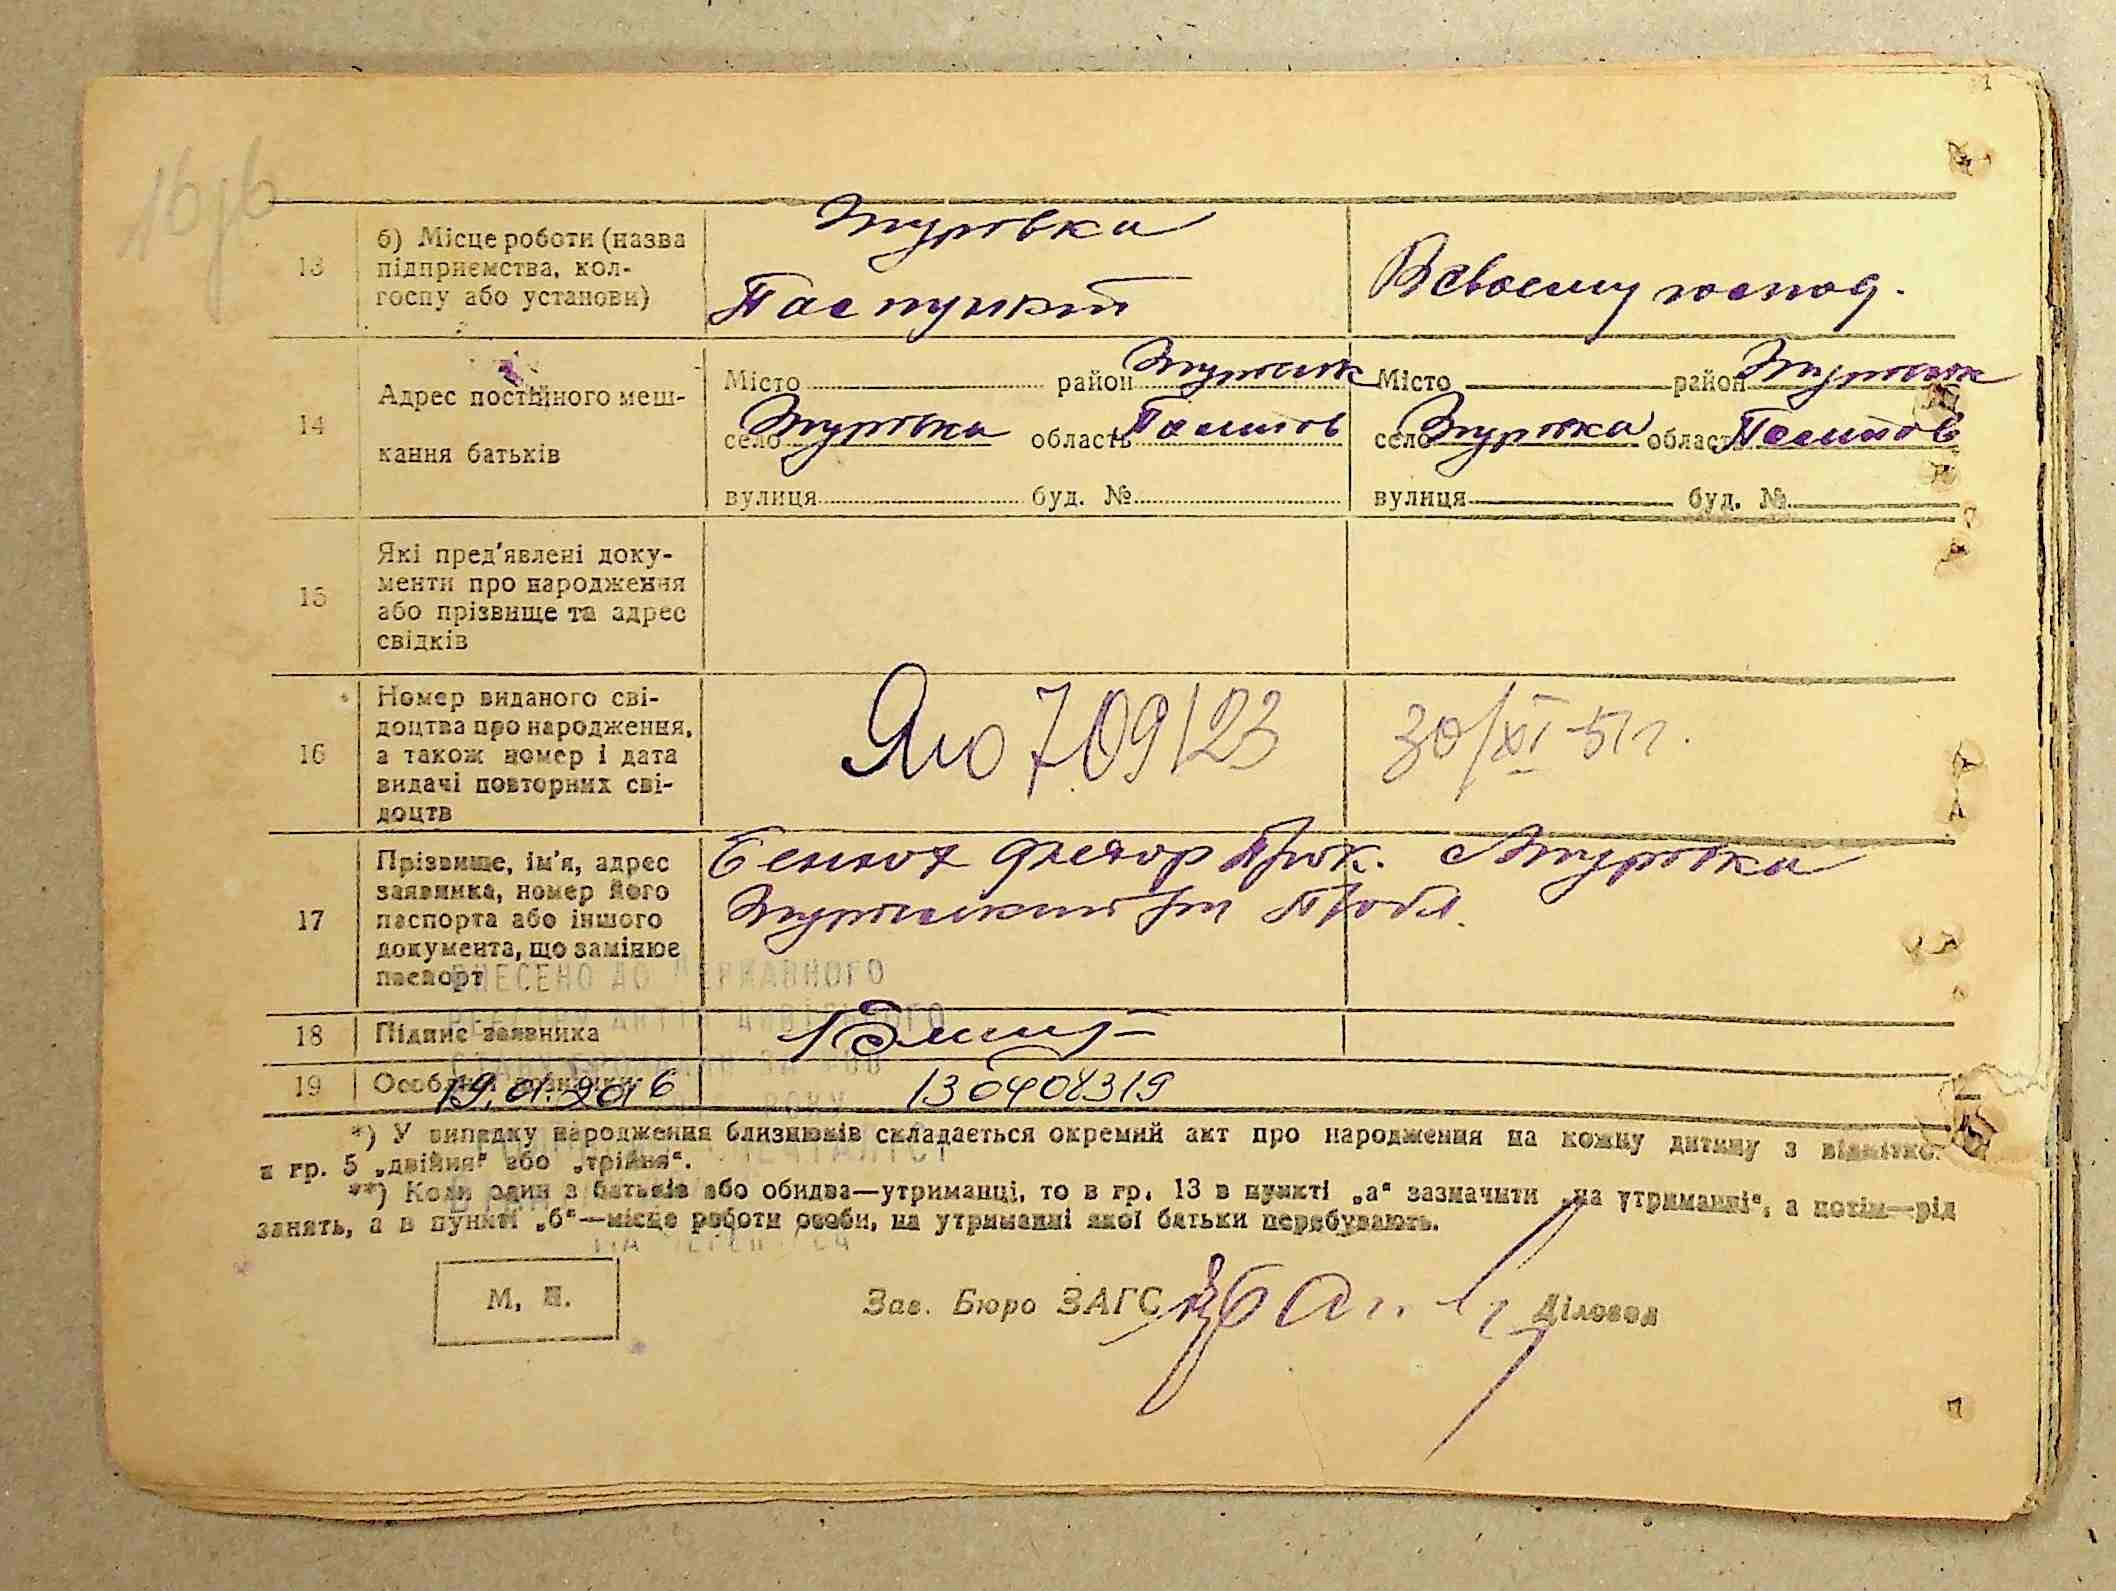 13
б) Місце роботи (назва
підприємства, кол-
госпу або установи)
Згуровка
Заг пункт
В своєму господ.
14
Адрес постійного меш-
кання батьків
Місто район Згуровск
село Згуровка область Полтав
вулиця буд. №
Місто район Згуровск
село Згуровка област Полтав
вулиця буд. №
15
Які пред'явлені доку-
менти про народження
або прізвище та адрес
свідків
16
Номер виданого сві-
доцтва про народження,
а також номер і дата
видачі повторних сві-
доцтв
709123
30/XI-51г.
17
Прізвище, ім'я, адрес
заявника, номер його
паспорта або іншого
документа, що замінює
паспорт
Прок. с Згуровка
Згуровский П обл.
ВНЕСЕНО ДО ДЕРЖАВНОГО
РЕЄСТРУ АКТІВ ЦИВІЛЬНОГО
18
Підпис заявника
19
Особливі
130408319
*) У випадку народження близнюків складається окремий акт про народження на кожну дитину з відмітко
в гр. 5 „двійня“ або „трійня“.
**) Коли один з батьків або обидва—утриманці, то в гр. 13 в пункті „а“ зазначити „на утриманні“, а потім—рід
занять, а в пункті „б“—місце роботи особи, на утриманні якої батьки перебувають.
М. П.
Зав. Бюро ЗАГС
Діловод